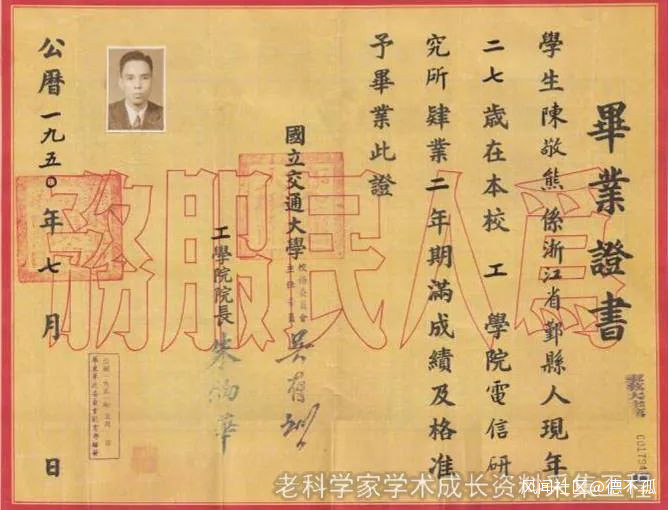 畢業證書
學生陳敬熊係浙江省鄞縣人現年
二七歲在本校工學院電信研
究所肄業二年期滿成績及格准
予畢業此證
國立交通大學
校務委員會
主任委員
吳有訓
工學院院長
朱物華
公曆一九五〇年七月 日
為人民服務
老科学家学术成长资料采集工程
@德不孤